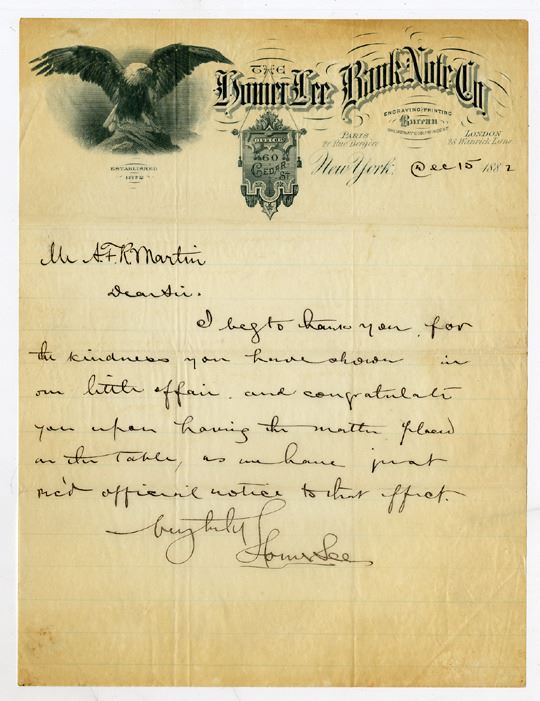 THE
Homer Lee Bank Note Co
ENGRAVING AND PRINTING
Bureau
OFFICE
60
CEDAR
ST
PARIS
LONDON
21 Rue Bergère
28 Warwick Lane
ESTABLISHED
New York, Dec 15 1882
Mr A.F.R. Martin
Dear Sir.
I beg to thank you, for
the kindness you have shown in
our little affair, and congratulate
you upon having the matter placed
on the table, as we have just
rec'd official notice to that effect.
Very truly
Homer Lee